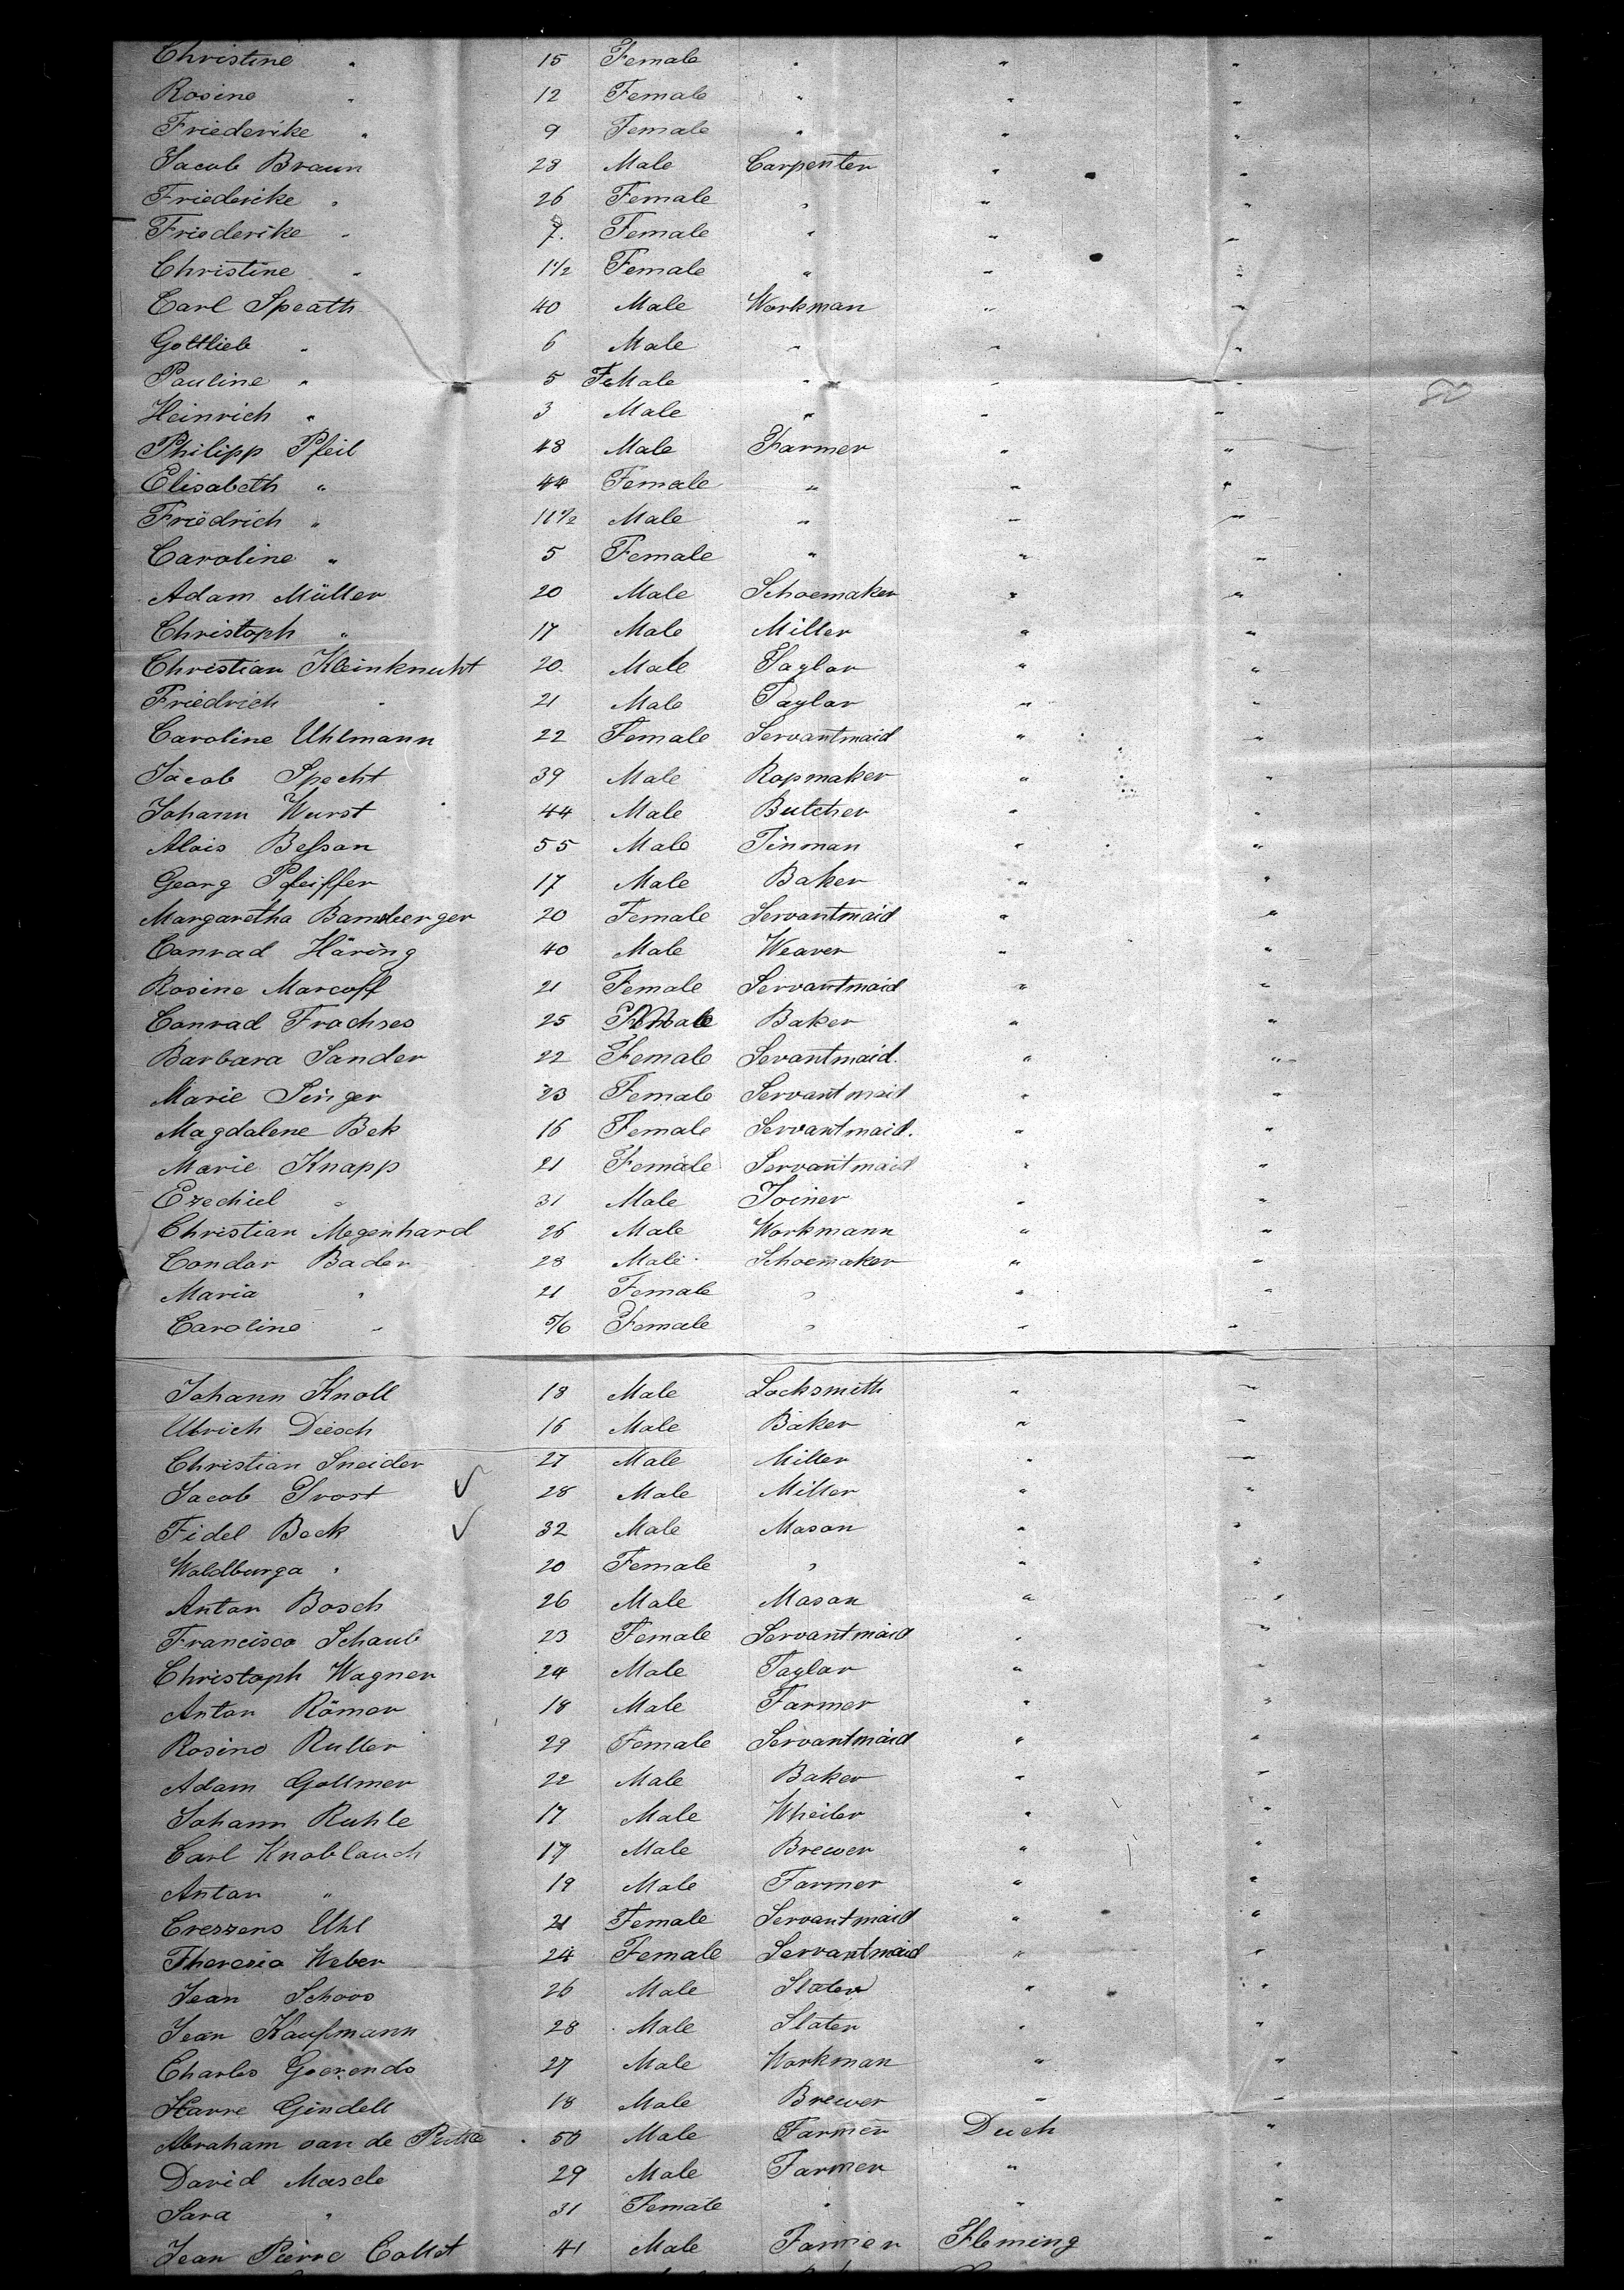 Christine " 15 Female " " "
Rosine " 12 Female " " "
Friederike " 9 Female " " "
Jacob Braun 28 Male Carpenter " "
Friederike " 26 Female " " "
Friederike " 7. Female " " "
Christine " 1 1/2 Female " " "
Carl Speath 40 Male Workman " "
Gottlieb " 6 Male " " "
Pauline " 5 FeMale " " "
80
Heinrich " 3 Male " " "
Philipp Pfeil 48 Male Farmer " "
Elisabeth " 44 Female " " "
Friedrich " 11 1/2 Male " " "
Caroline " 5 Female " " "
Adam Müller 20 Male Schoemaker " "
Christoph " 17 Male Miller " "
Christian Kleinknecht 20. Male Taylor " "
Friedrich " 21 Male Taylor " "
Caroline Uhlmann 22 Female Servantmaid " "
Jacob Specht 39 Male Ropmaker " "
Johann Wurst 44 Male Butcher " "
Alois Beſsan 55 Male Tinman " "
Georg Pfeiffer 17 Male Baker " "
Margaretha Bamberger 20 Female Servantmaid " "
Conrad Häring 40 Male Weaver " "
Rosine Marcoff 21 Female Servantmaid " "
Conrad Frochses 25 Male Baker " "
Barbara Sander 22 Female Sevantmaid. " "
Marie Singer 23 Female Servantmaid " "
Magdalene Bek 16 Female Servantmaid. " "
Marie Knapp 21 Female Servantmaid " "
Ezechiel " 31 Male Joiner " "
Christian Megenhard 26 Male Workmann " "
Condor Bader 28 Male Schoemaker " "
Maria " 21 Female " " "
Caroline " 5/6 Female " " "
Johann Knoll 18 Male Locksmith " "
Ulrich Diesch 16 Male Baker " "
Christian Sneider 27 Male Miller " "
Jacob Trost ✓ 28 Male Miller " "
Fidel Beck ✓ 32 Male Mason " "
Waldburga " 20 Female " " "
Anton Bosch 26 Male Mason " "
Francisca Schaub 23 Female Servantmaid " "
Christoph Wagner 24 Male Taylor " "
Anton Römer 18 Male Farmer " "
Rosine Ruller 29 Female Servantmaid " "
Adam Gollmer 22 Male Baker " "
Johann Ruhle 17 Male Wheiler " "
Carl Knoblauch 17 Male Brewer " "
Anton " 19 Male Farmer " "
Creszens Uhl 21 Female Servantmaid " "
Theresia Weber 24 Female Servantmaid " "
Jean Schoos 26 Male Slater " "
Jean Kaufmann 28 Male Slater " "
Charles Goerends 27 Male Workman " "
Harre Gindell 18 Male Brewer " "
Abraham van de Putte 50 Male Farmer Duch "
David Masele 29 Male Farmer " "
Sara " 31 Female " " "
Jean Pierre Collet 41 Male Farmer Fleming "